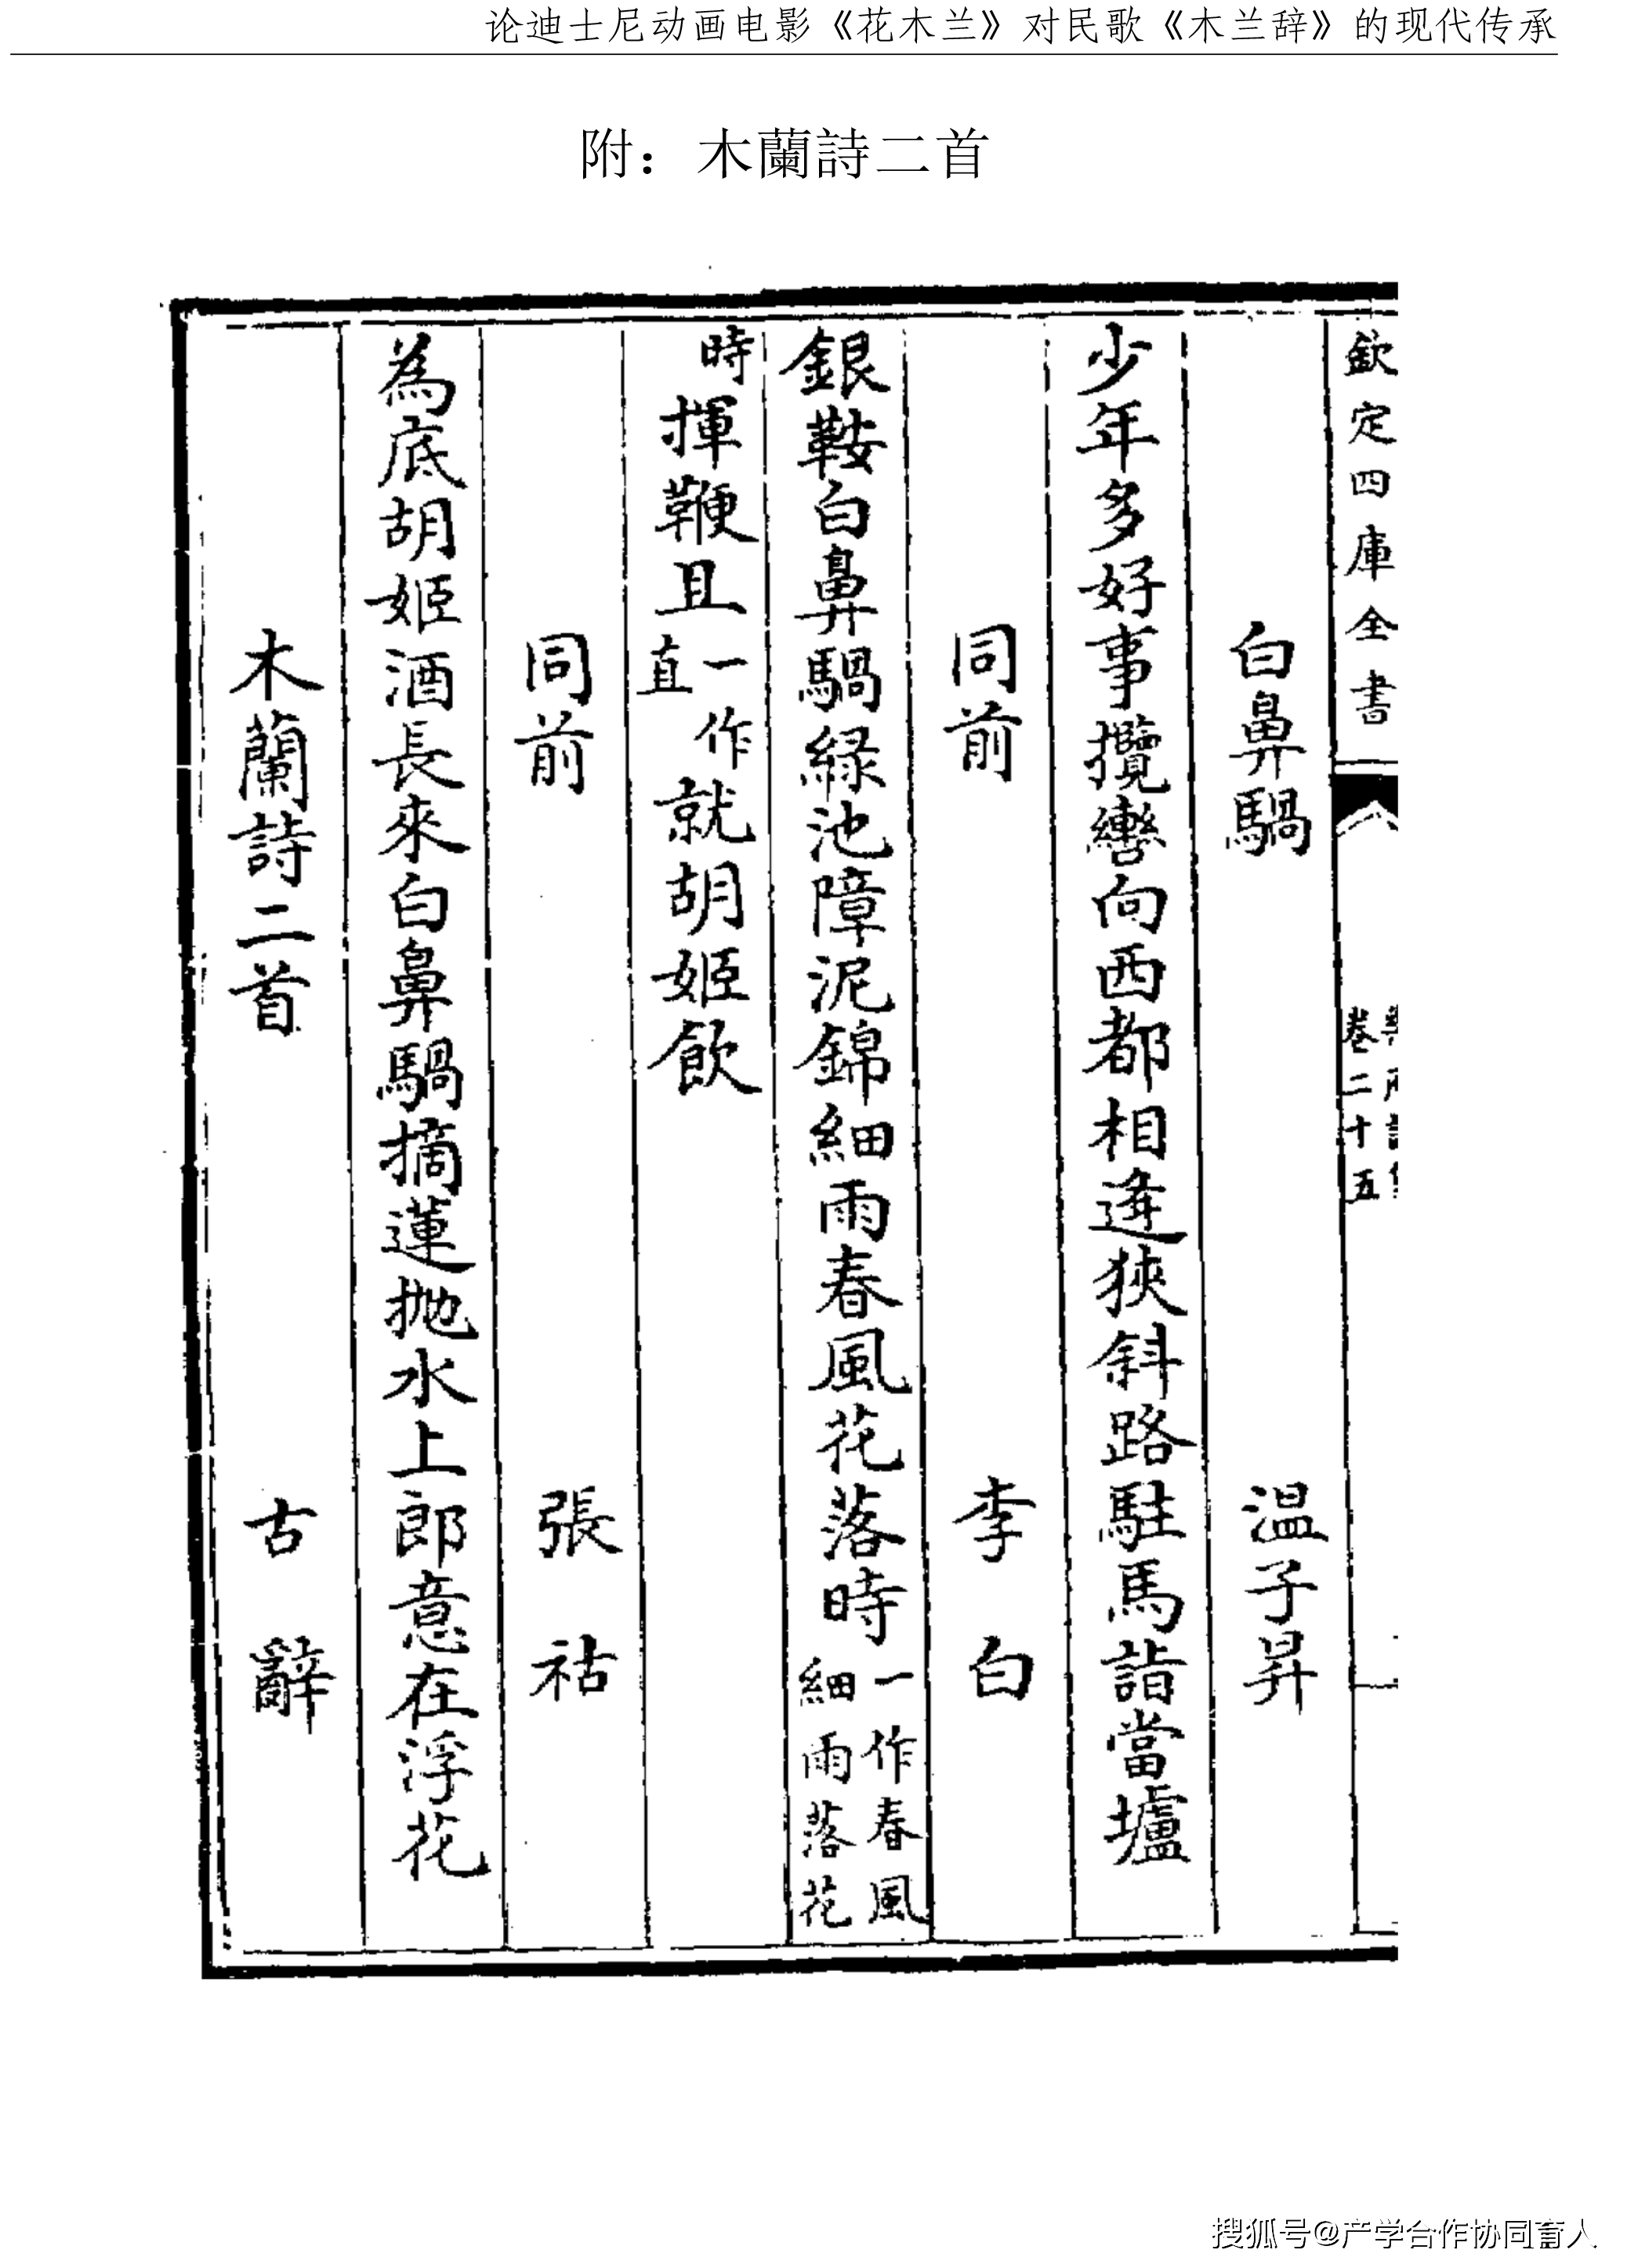 论迪士尼动画电影《花木兰》对民歌《木兰辞》的现代传承
附：木蘭詩二首
欽定四庫全書
卷二十五
白鼻騧 温子昇
少年多好事攬轡向西都相逢狹斜路駐馬詣當壚
同前 李白
銀鞍白鼻騧緑池障泥錦細雨春風花落時一作春風
細雨落花
時揮鞭且一作
直就胡姬飲
同前 張祜
為底胡姬酒長來白鼻騧摘蓮抛水上郎意在浮花
木蘭詩二首 古辭
搜狐号@产学合作协同育人